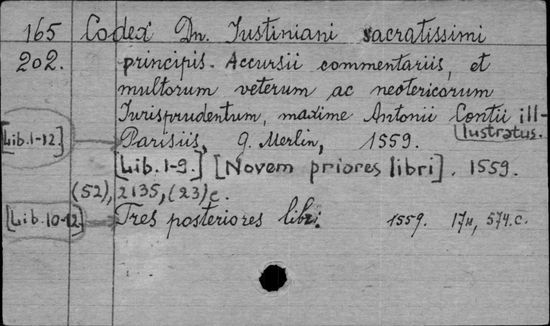 165 Codex Dn. Iustiniani sacratissimi
202. principis. Accursii commentariis, et
multorum veterum ac neotericorum
Iurisprudentum, maxime Antonii Contii ill-
lustratus.
[Lib. 1-12] Parisiis, G. Merlin, 1559.
[Lib. 1-9.] [Novem priores libri]. 1559.
(52), 2135, (23) c.
[Lib. 10-12] Tres posteriores libri. 1559. 17 , 574.c.